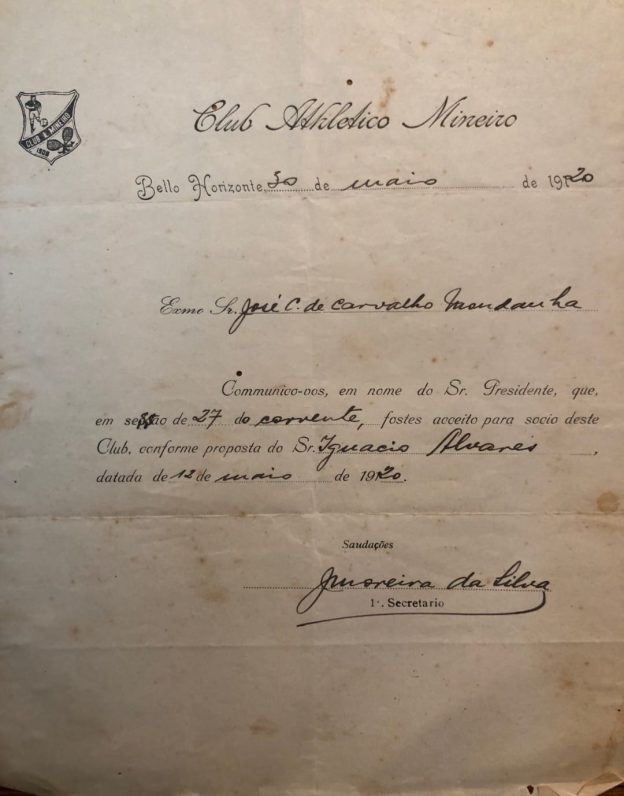 CLUB A. MINEIRO
1908
Club Athletico Mineiro
Bello Horizonte, 30 de maio de 1920
Exmo Sr. José C. de Carvalho Mendanha
Communico-vos, em nome do Sr. Presidente, que,
em sessão de 27 do corrente, fostes acceito para socio deste
Club, conforme proposta do Sr. Ignacio Alvares,
datada de 12 de maio de 1920.
Saudações
JMoreira da Silva
1º. Secretario